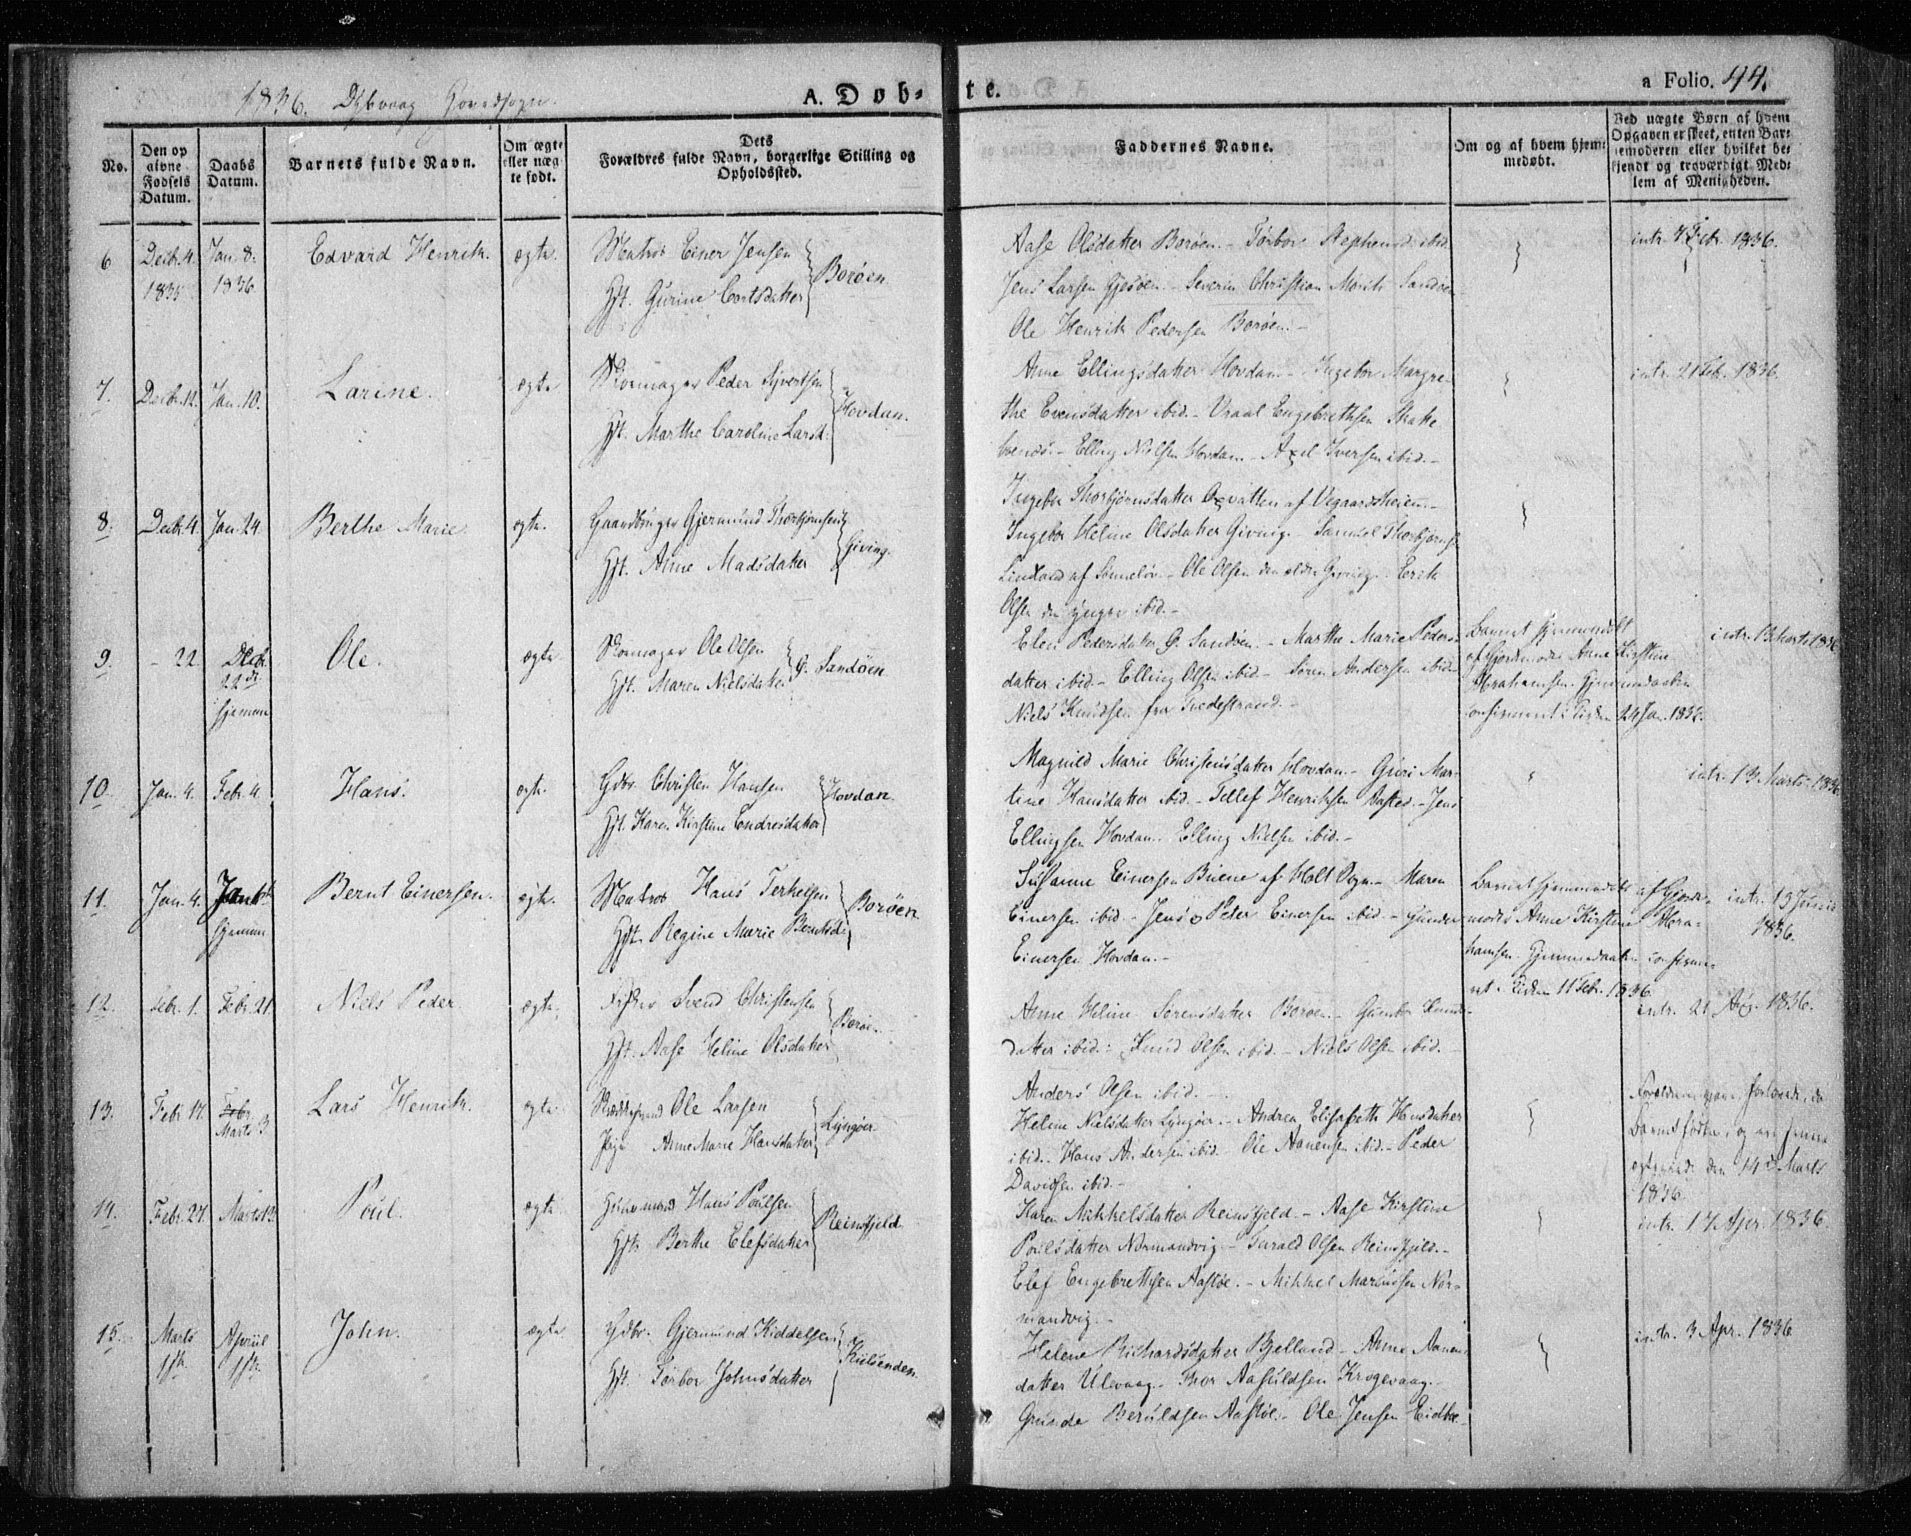 1836. Dybvaag Hovedsogn.
A. Døb-te.
a Folio. 44.
No.
Den op
givne
Fødsels
Datum.
Daabs
Datum.
Barnets fulde Navn.
Om ægte
eller uæg
te født.
Dets
Forældres fulde Navn, borgerlige Stilling og
Opholdssted.
Faddernes Navne.
Om og af hvem hjem-
medøbt.
Ved uægte Børn af hvem
Opgaven er skeet, enten Bar-
nemoderen eller hvilket be-
kjendt og troværdigt Med-
lem af Menigheden.
6
Decb. 4.
1835
Jan. 8.
1836
Edvard Henrik.
ægte.
Matros Einer Jensen
Hst. Gurine Cortsdatter
Borøen
Aase Olsdatter Borøen. - Torbor Stephensd. ibid.
Jens Larsen Gjesøen. - Severin Christian Moritz Sandøen
Ole Henrik Pedersen Borøen. -
intr. 7 Febr. 1836.
7.
Decb. 12.
Jan. 10.
Larine.
ægte
Skomager Peder Syvertsen
Hst. Marthe Caroline Larsd.
Hovdan.
Anne Ellingsdatter Hovdan - Ingebor Margre-
the Evensdatter ibid. - Vraal Engebrethsen
Elling Nielsen Hovdan - Axel Iversen ibid. -
intr. 21 Febr. 1836.
8.
Decb. 4.
Jan. 24.
Berthe Marie
ægte.
Gaardbruger Gjermund Thorbjørnsen
Hst. Anne Madsdatter
Giving.
Ingebor Thorbjørnsdatter af Vegaardsheien. -
Ingebor Heline Olsdatter Giving. Samuel Thorbjørns.
af Sønneløv - Ole Olsen den eldre Giving - Erik
Olsen den yngre ibid. -
9.
- 22.
Decb.
22de
hjemme
Ole.
ægte
Skomager Ole Olsen
Hst. Maren Nielsdatter
G. Sandøen
Elen Pedersdatter G. Sandøen. - Marthe Marie Peders-
datter ibid. - Elling Olsen ibid - Søren Andersen ibid -
Niels Knudsen fra Tvedestrand. -
Barnet hjemmedøbt
af Gjordemoder Anne Kirstine
Abrahamsen. Hjemmedaaben
confirmeret i Kirken 24 Jan. 1836.
intr. 13 Marts 1836
10.
Jan. 4.
Febr. 4.
Hans.
ægte.
Gdbr. Christen Hansen
Hst. Karen Kirstine Endresdatter
Hovdan.
Magnild Marie Christensdatter Hovdan. - Guri Mar-
tine Hansdatter ibid. - Tellef Henriksen - Jens
Ellingsen Hovdan. Elling Nielsen ibid. -
intr. 13 Marts 1836
11.
Jan. 4.
hjemme
Bernt Einersen.
ægte.
Matros Hans Terkelsen
Hst. Regine Marie Berntsd.
Borøen
Susanne Einersen Buene af Holt Sogn - Maren
Einersen ibid - Jens Peter Einersen ibid. - Gunder
Einersen Hovdan. -
Barnet hjemmedøbt af Gjorde-
moder Anne Kirstine Abra-
hamsen. Hjemmedaaben confirme-
ret i Kirken 11 Febr. 1836
intr. 19 Juni
1836.
12.
Febr. 1.
Febr. 21.
Niels Peder
ægte.
Fisker Svend Christensen
Hst. Aase Heline Olsdatter
Borøen.
Anne Heline Sørensdatter Borøen. - Gunbor Knuds-
datter ibid. - Knud Olsen ibid - Niels Olsen ibid.
Anders Olsen ibid. -
intr. 21 Apr. 1836.
13.
Febr. 14.
Febr.
Marts 3
Lars Henrik.
ægte.
Ole Larsen
Pige Anne Marie Hansdatter
Lyngøer
Heline Nielsdatter Lyngøer. - Andrea Elisabeth Hansdatter
ibid. - Hans Andersen ibid. Ole Aanensen ibid - Peder
Davidsen ibid -
Forældrene vare forlovede, da
Barnet fødtes, og ere senere
ægteviede den 14de Marts
1836
14.
Febr. 27.
Marts 13
Poul.
ægte
Huusmand Hans Poulsen
Hst. Berthe Elefsdatter
Reinsfjeld
Karen Mikkelsdatter Reinsfjeld - Aase Kirstine
Poulsdatter Normandvig - Tarald Olsen Reinsfjeld. -
Elef Engebrettsen Aasløe. - Mikkel Marcussen Nor-
mandvig. -
intr. 17 Apr. 1836.
15.
Marts
1ste
April
1ste
John.
ægte
Gdbr. Gjermund Kiddelsen
Hst. Torbor Johnsdatter
Kiilsenden.
Helene Richardsdatter Bjelland - Anne Aanen-
datter Ulevaag - Thor Aasuldsen Krogevaag. -
Gunde Beruldsen Aasløe. - Ole Jensen Eidboe
intr. 3 Apr. 1836